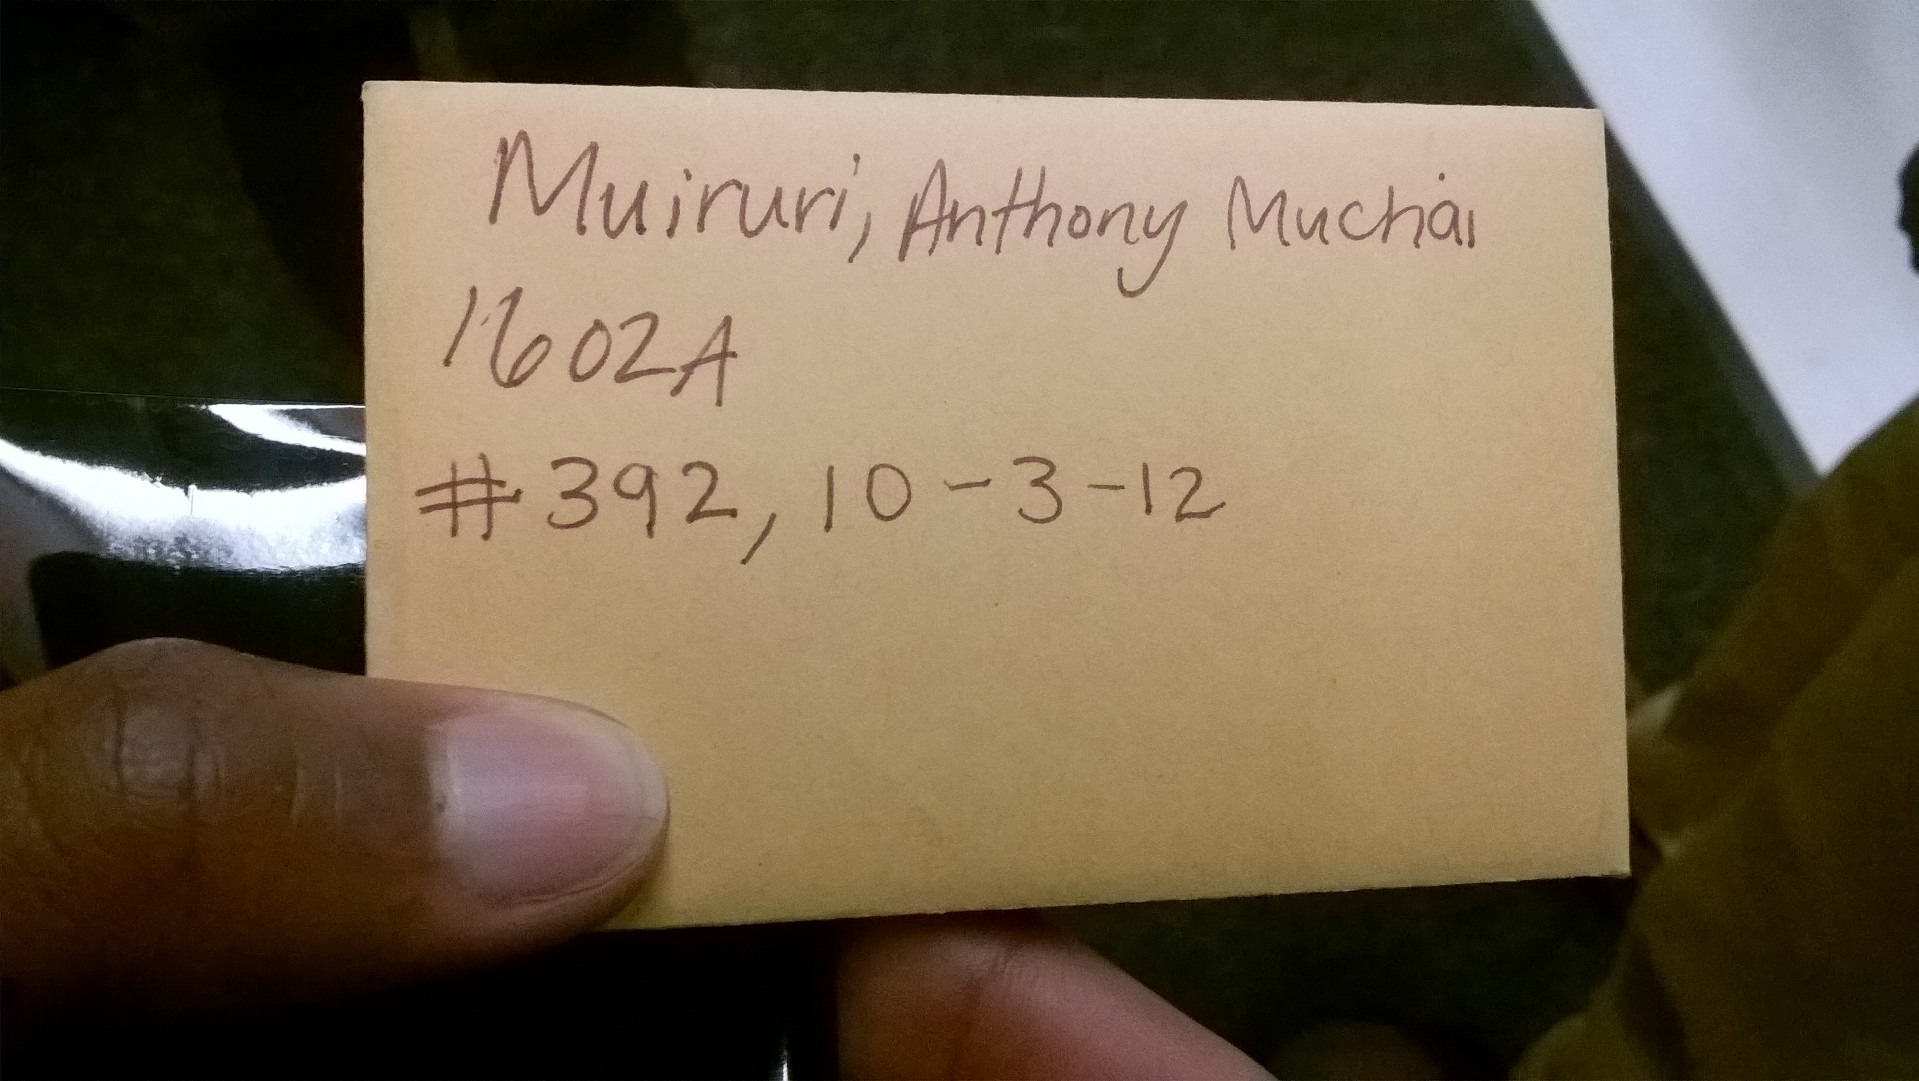 Muiruri, Anthony Muchai
1602A
#392, 10-3-12